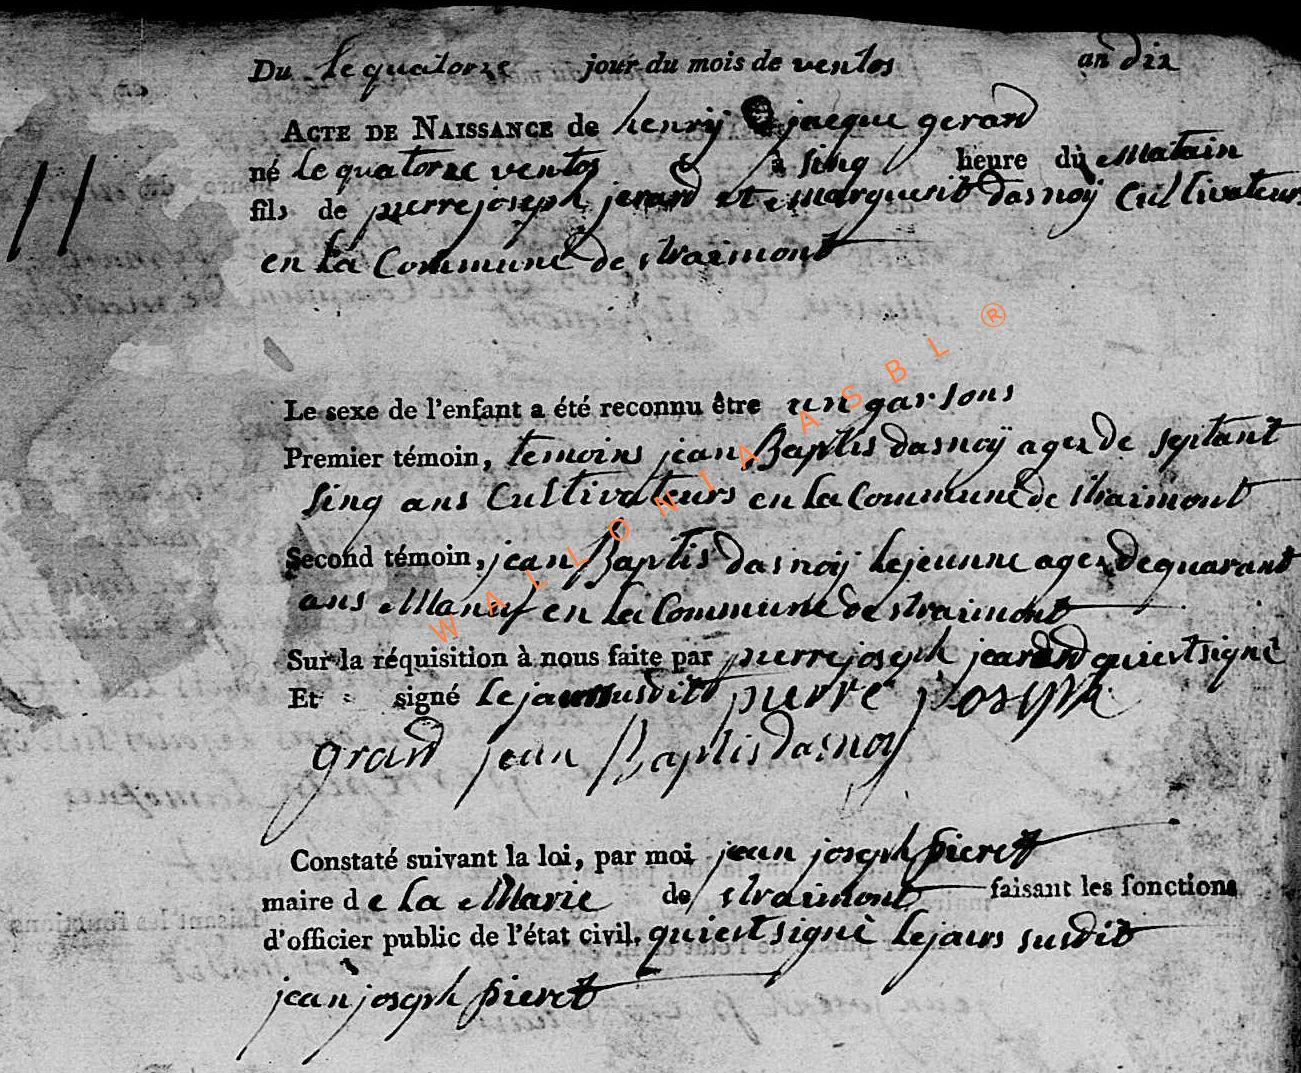 Du le quatorze jour du mois de ventos an dix
ACTE DE NAISSANCE de henry jacque gerard
né le quatorze ventos à sinq heure du Matain
fils de pierre joseph jerard et Marguerit dasnoÿ Cultivateurs
en la Commune de straimont
11
Le sexe de l'enfant a été reconnu être un garsons
Premier témoin, temoins jean Baptis dasnoÿ agez de septant
sinq ans Cultivateurs en la Commune de straimont
Second témoin, jean Baptis dasnoÿ lejeunne agez de quarant
ans en la Commune de straimont
Sur la réquisition à nous faite par pierre joseph jearard qui est signé
Et signé le jaur susdit pierre joseph
grard jean Baptis dasnoy
Constaté suivant la loi, par moi jean joseph pieret
maire de la Marie de straimont faisant les fonctions
d'officier public de l'état civil. qui est signè le jaurs susdit
jean joseph pieret
WALLONIA ASBL ®